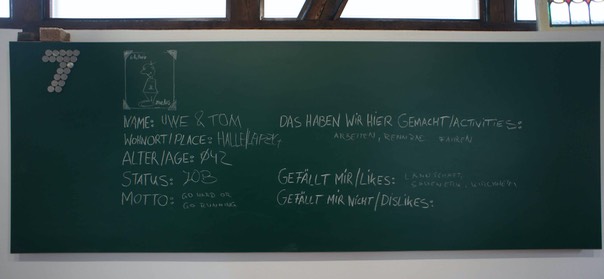 7
NAME: UWE & TOM
WOHNORT/PLACE: HALLE/LEIPZIG
ALTER/AGE: Ø42
STATUS:
MOTTO: GO HARD OR
GO RUNNING
DAS HABEN WIR HIER GEMACHT/ACTIVITIES:
ARBEITEN, FAHREN
GEFÄLLT MIR/LIKES: LANDSCHAFT,
GEFÄLLT MIR NICHT/DISLIKES: